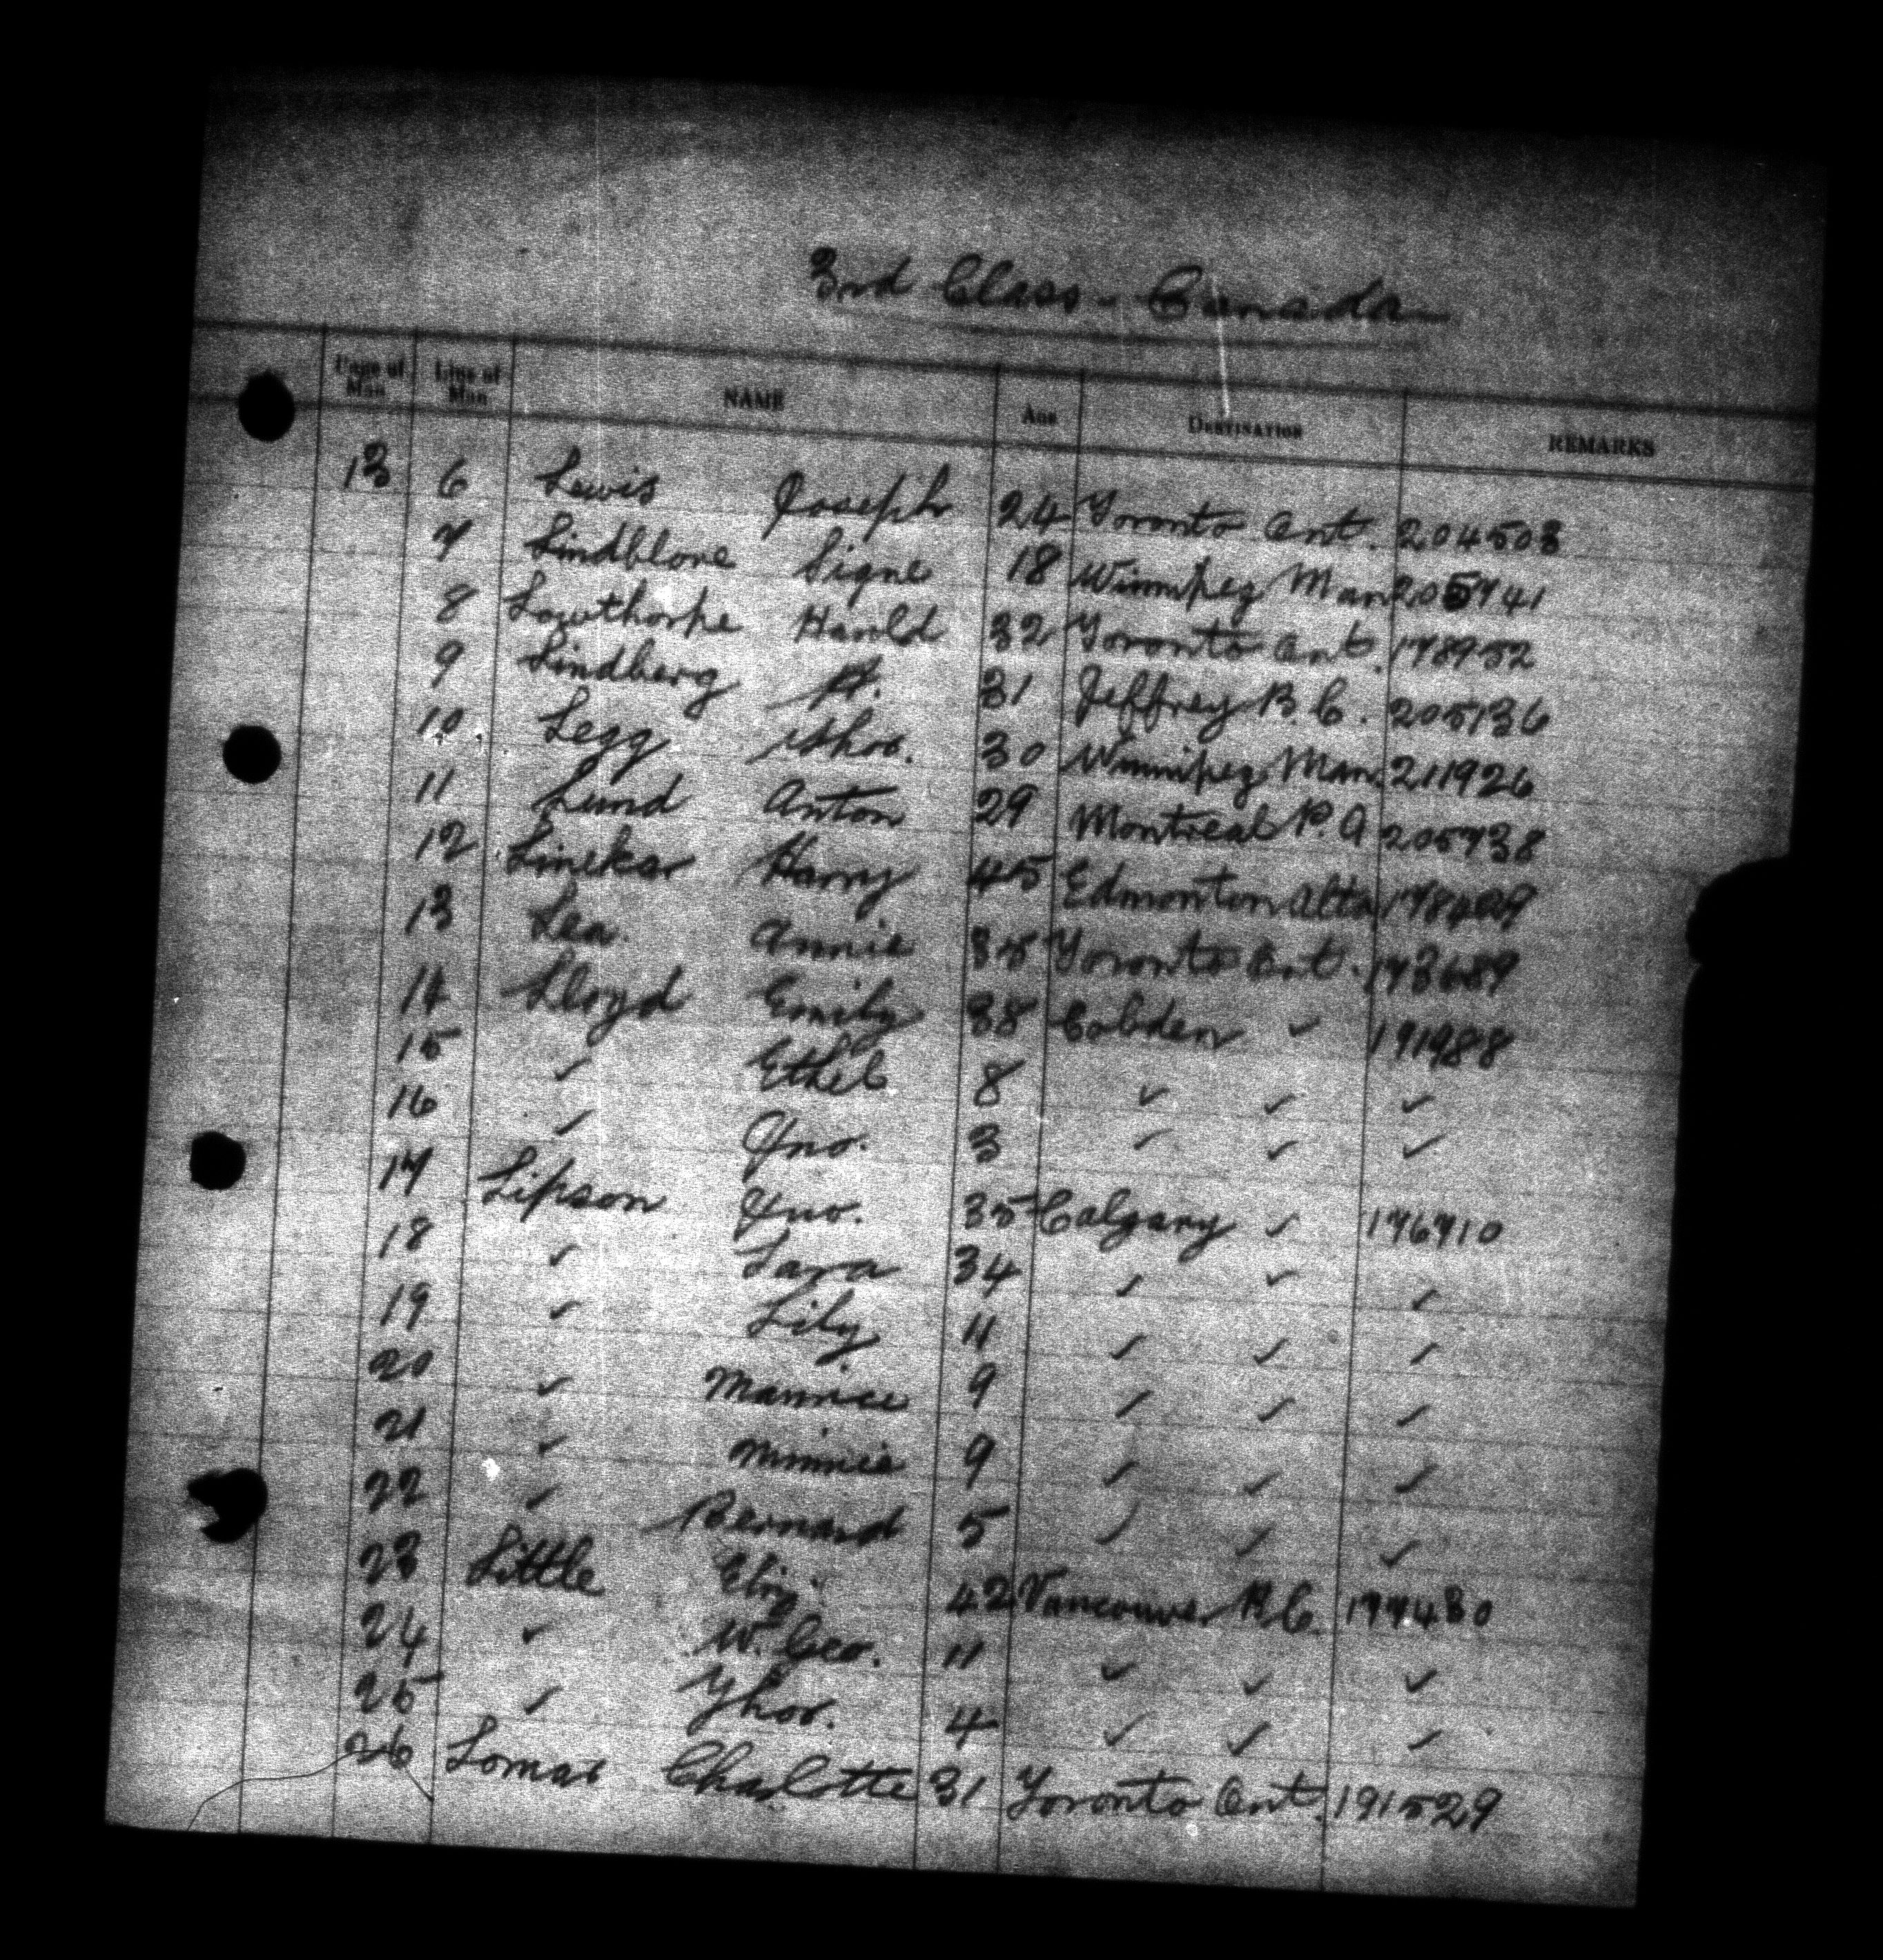 3rd Class - Canada
Page of Man Line of Man NAME Age DESTINATION REMARKS
13 6 Lewis Joseph 24 Toronto Ont. 204503
7 Lindblone Signe 18 Winnipeg Man 205741
8 Lowthorpe Harold 32 Toronto Ont. 178952
9 Lindberg A. 31 Jeffrey B.C. 205136
10 Legg Thos. 30 Winnipeg Man. 211926
11 Lund Anton 29 Montreal P.Q 205738
12 Linekar Harry 45 Edmonton Alta
13 Lea. Annie 35 Toronto Ont. 173689
14 Lloyd Emily 38 Cobden ✓ 191988
15 ✓ Ethel 8 ✓ ✓ ✓
16 ✓ Jno. 3 ✓ ✓ ✓
17 Lipson Jno. 35 Calgary ✓ 176710
18 ✓ Sara 34 ✓ ✓ ✓
19 ✓ Lily 11 ✓ ✓ ✓
20 ✓ Maurice 9 ✓ ✓ ✓
21 ✓ Minnie 9 ✓ ✓ ✓
22 ✓ Bernard 5 ✓ ✓ ✓
23 Little Eliz. 42 Vancouver B.C. 177430
24 ✓ W. Geo. 11 ✓ ✓ ✓
25 ✓ Thos. 4 ✓ ✓ ✓
26 Lomas Charlotte 31 Toronto Ont. 191529